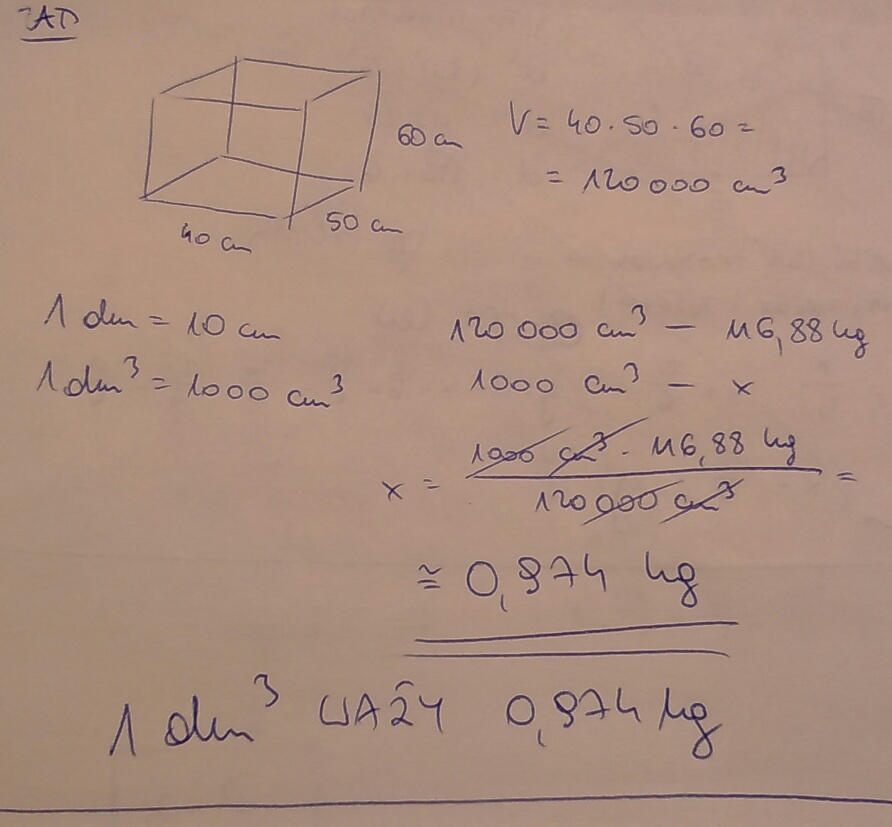 ZAD
60 cm
50 cm
40 cm
V = 40 · 50 · 60 =
= 120 000 cm³
1 dm = 10 cm
1 dm³ = 1000 cm³
120 000 cm³ — 116,88 kg
1000 cm³ — x
x = 1000 cm³ · 116,88 kg / 120 000 cm³ =
≅ 0,974 kg
1 dm³ WAŻY 0,974 kg